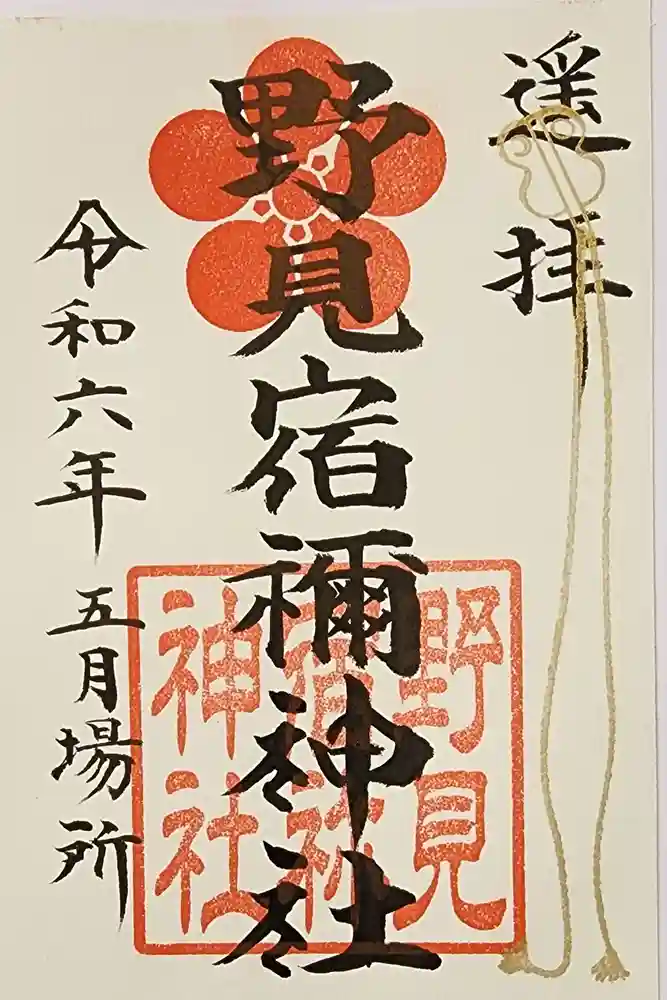 遥拝
野見宿禰神社
野見
宿祢
神社
令和六年 五月場所